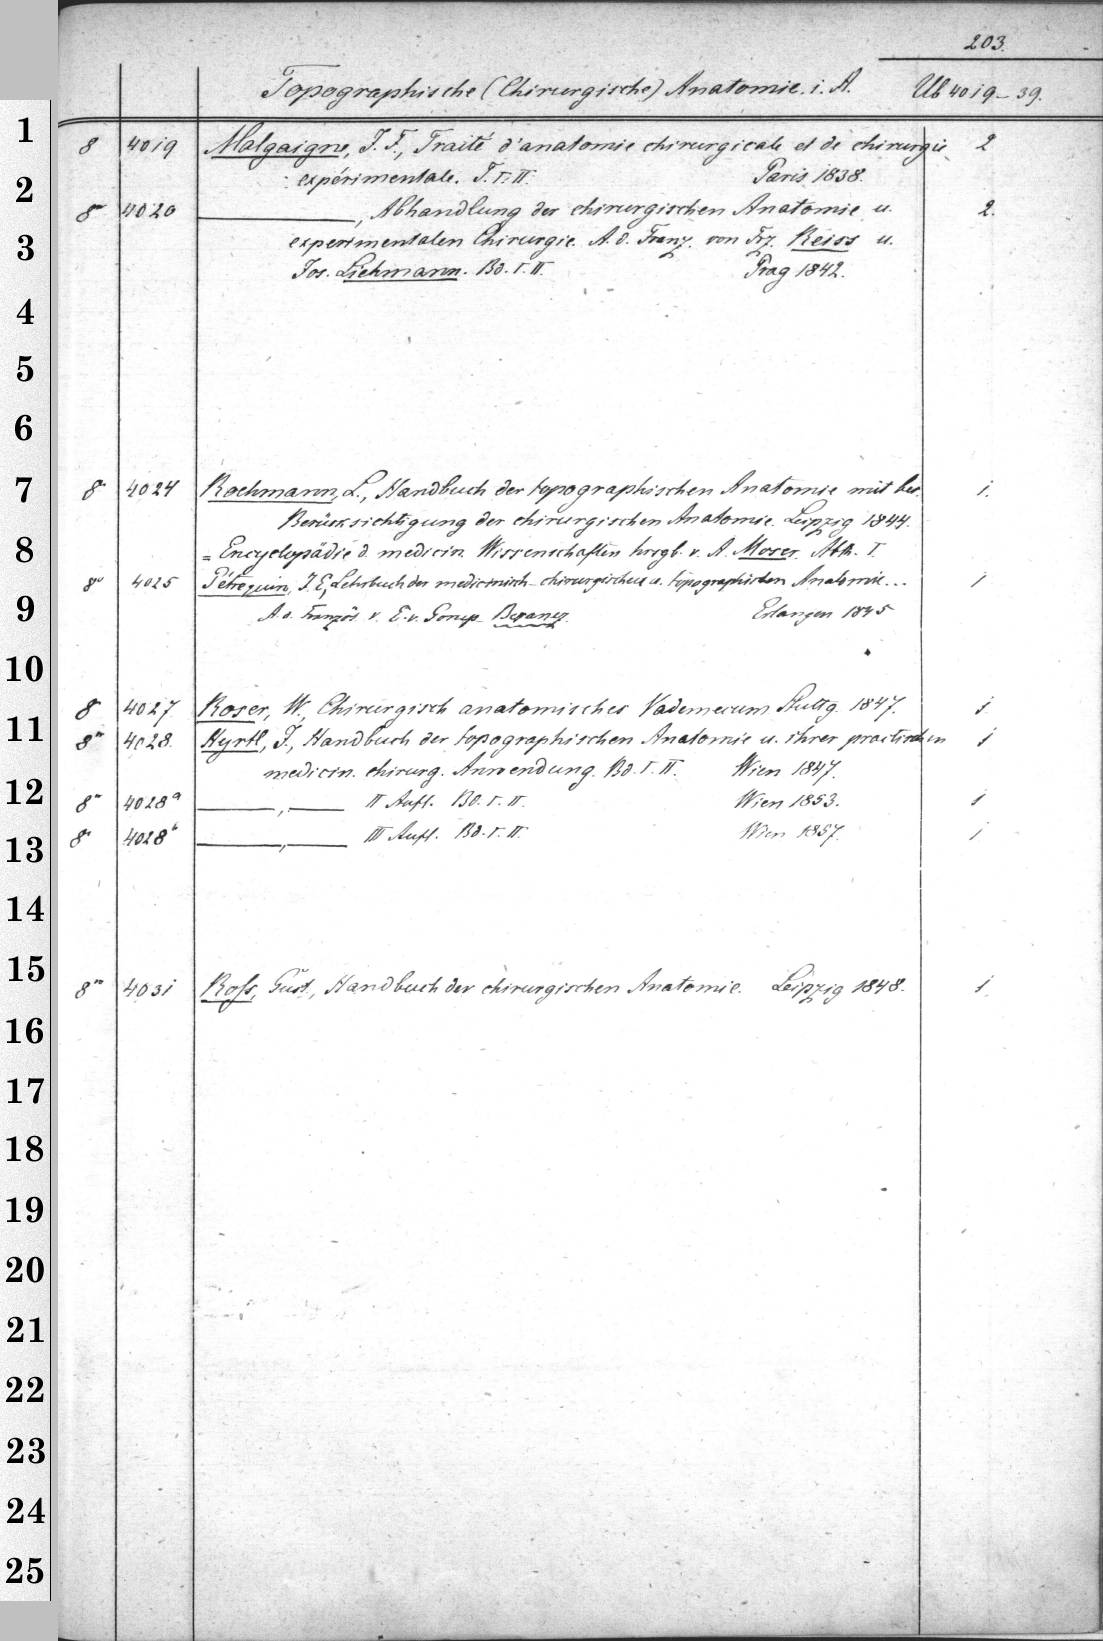 203.
Topographische (Chirurgische) Anatomie. i. A. Ub 4019-39.
8 4019 Malgaigne, J. F., Traité d'anatomie chirurgicale et de chirurgie 2
expérimentale. T. I. II. Paris 1838.
8° 4020 ———, Abhandlung der chirurgischen Anatomie u. 2.
experimentalen Chirurgie. A. d. Franz. von Frz. Reiss u.
Jos. Liehmann. Bd. I. II. Prag 1842.
8° 4024 Rochmann, L., Handbuch der topographischen Anatomie mit bes. 1.
Berücksichtigung der chirurgischen Anatomie. Leipzig 1844.
= Encyclopädie d. medicin. Wissenschaften hrsgb. v. A. Moser. Abth. I.
8° 4025 Pétrequin, J. E., Lehrbuch der medicinisch-chirurgischen u. topographischen Anatomie... 1
A. d. Französ. v. E. v. Gorup-Besanez. Erlangen 1845
8 4027 Roser, W., Chirurgisch anatomisches Vademecum Stuttg. 1847. 1.
8° 4028. Hyrtl, J., Handbuch der topographischen Anatomie u. ihrer practischen 1
medicin. chirurg. Anwendung. Bd. I. II. Wien 1847.
8° 4028a ———, ——— II Aufl. Bd. I. II. Wien 1853. 1
8° 4028b ———, ——— III Aufl. Bd. I. II. Wien 1857. 1
8° 4031 Ross, Gust., Handbuch der chirurgischen Anatomie. Leipzig 1848. 1.
1
2
3
4
5
6
7
8
9
10
11
12
13
14
15
16
17
18
19
20
21
22
23
24
25